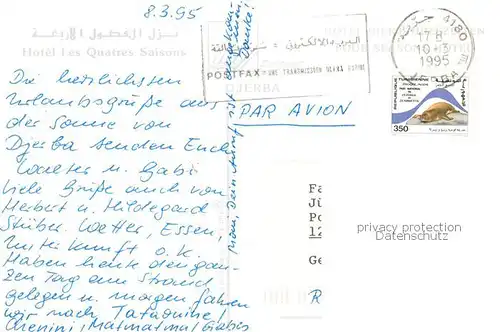 8.3.95
نـزل الفصول الأربعة
Hotel Les Quatres Saisons
Die herzlichsten
Urlaubsgrüße aus
der Sonne von
Djerba senden Euch
Walter u. Gabi
Viele Grüße auch von
Herbert u. Hildegard
Stüber. Wetter, Essen,
Unterkunft o.K.
Haben heute den gan-
zen Tag am Strand
gelegen u. morgen fahren
wir nach Tataouine/
Chenini/Matmatma/Gabès
Danke!
POSTFAX = UNE TRANSMISSION ULTRA RAPIDE
DJERBA
PAR AVION
4180
17 H
10-3
1995
DJERBA
REPUBLIQUE TUNISIENNE
350
Fa
Jü
Po
12
Ge
R
privacy protection
Datenschutz